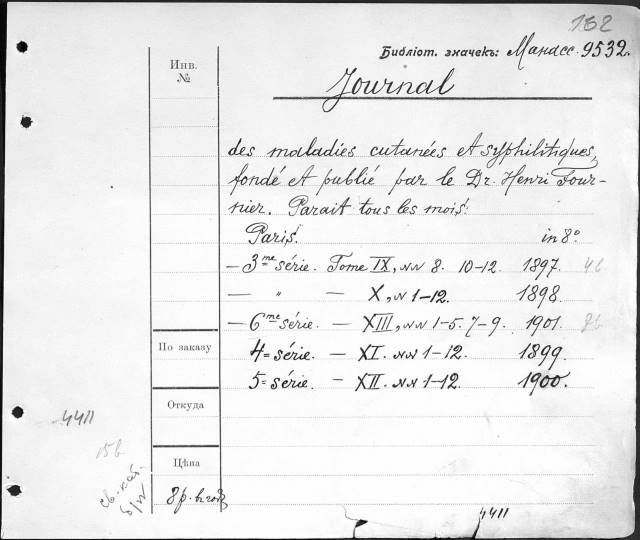 152
Библіот. значекъ: Манасс. 9532.
Инв.
№
Journal
des maladies cutanées et syphilitiques,
fondé et publié par le Dr. Henri Four-
nier. Parait tous les mois.
Paris. in 8°
– 3me série. Tome IX, NN 8. 10-12. 1897. 4b
– " – X, N 1-12. 1898.
– 6me série. – XIII, NN 1-5. 7-9. 1901.
По заказу
4= série. – XI. NN 1-12. 1899.
5= série. – XII. NN 1-12. 1900.
Откуда
4411
15b
Цѣна
св. кат.
б/н
8р. въ годъ
4411